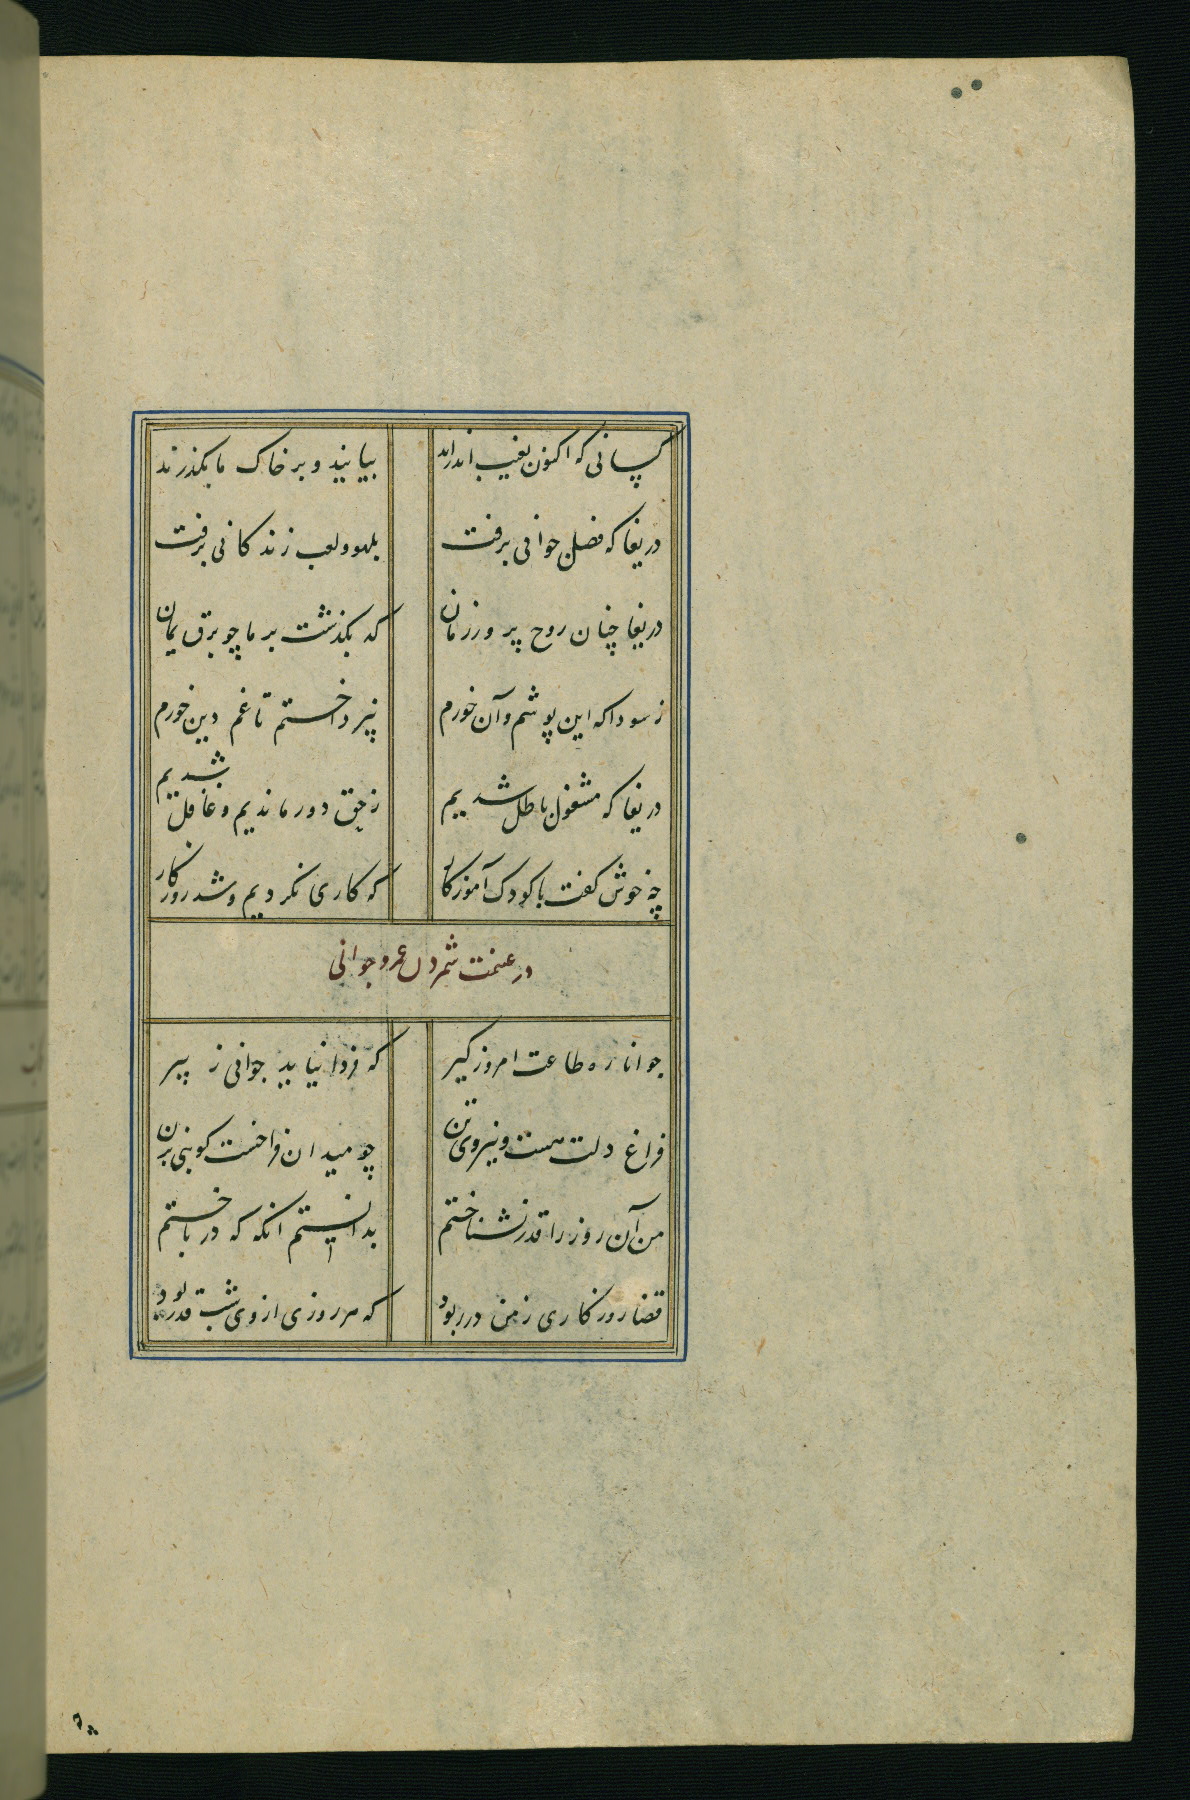 کسانی که اکنون بغیب اندراند بیایند و بر خاک ما بگذرند
دریغا که فصل جوانی برفت بلهو ولعب زندگانی برفت
دریغا چنان روح پرور زمان که بگذشت بر ما چو برق یمان
ز سودا که این پوشم و آن خورم نپرداختم تا غم دین خورم
دریغا که مشغول باطل شدیم ز حق دور ماندیم و غافل شدیم
چه خوش گفت با کودک آموزگار که کاری نکردیم و شد روزگار
در غنمت شمردن عمر و جوانی
جوانا ره طاعت امروز گیر که فردا نیاید جوانی ز پیر
فراغ دلت هست و نیروی تن چو میدان فراخست گویی بزن
من آن روز را قدر نشناختم بدانستم انکه که در باختم
قضا روزگاری ز من در ربود که هر روزی از وی شب قدر بود